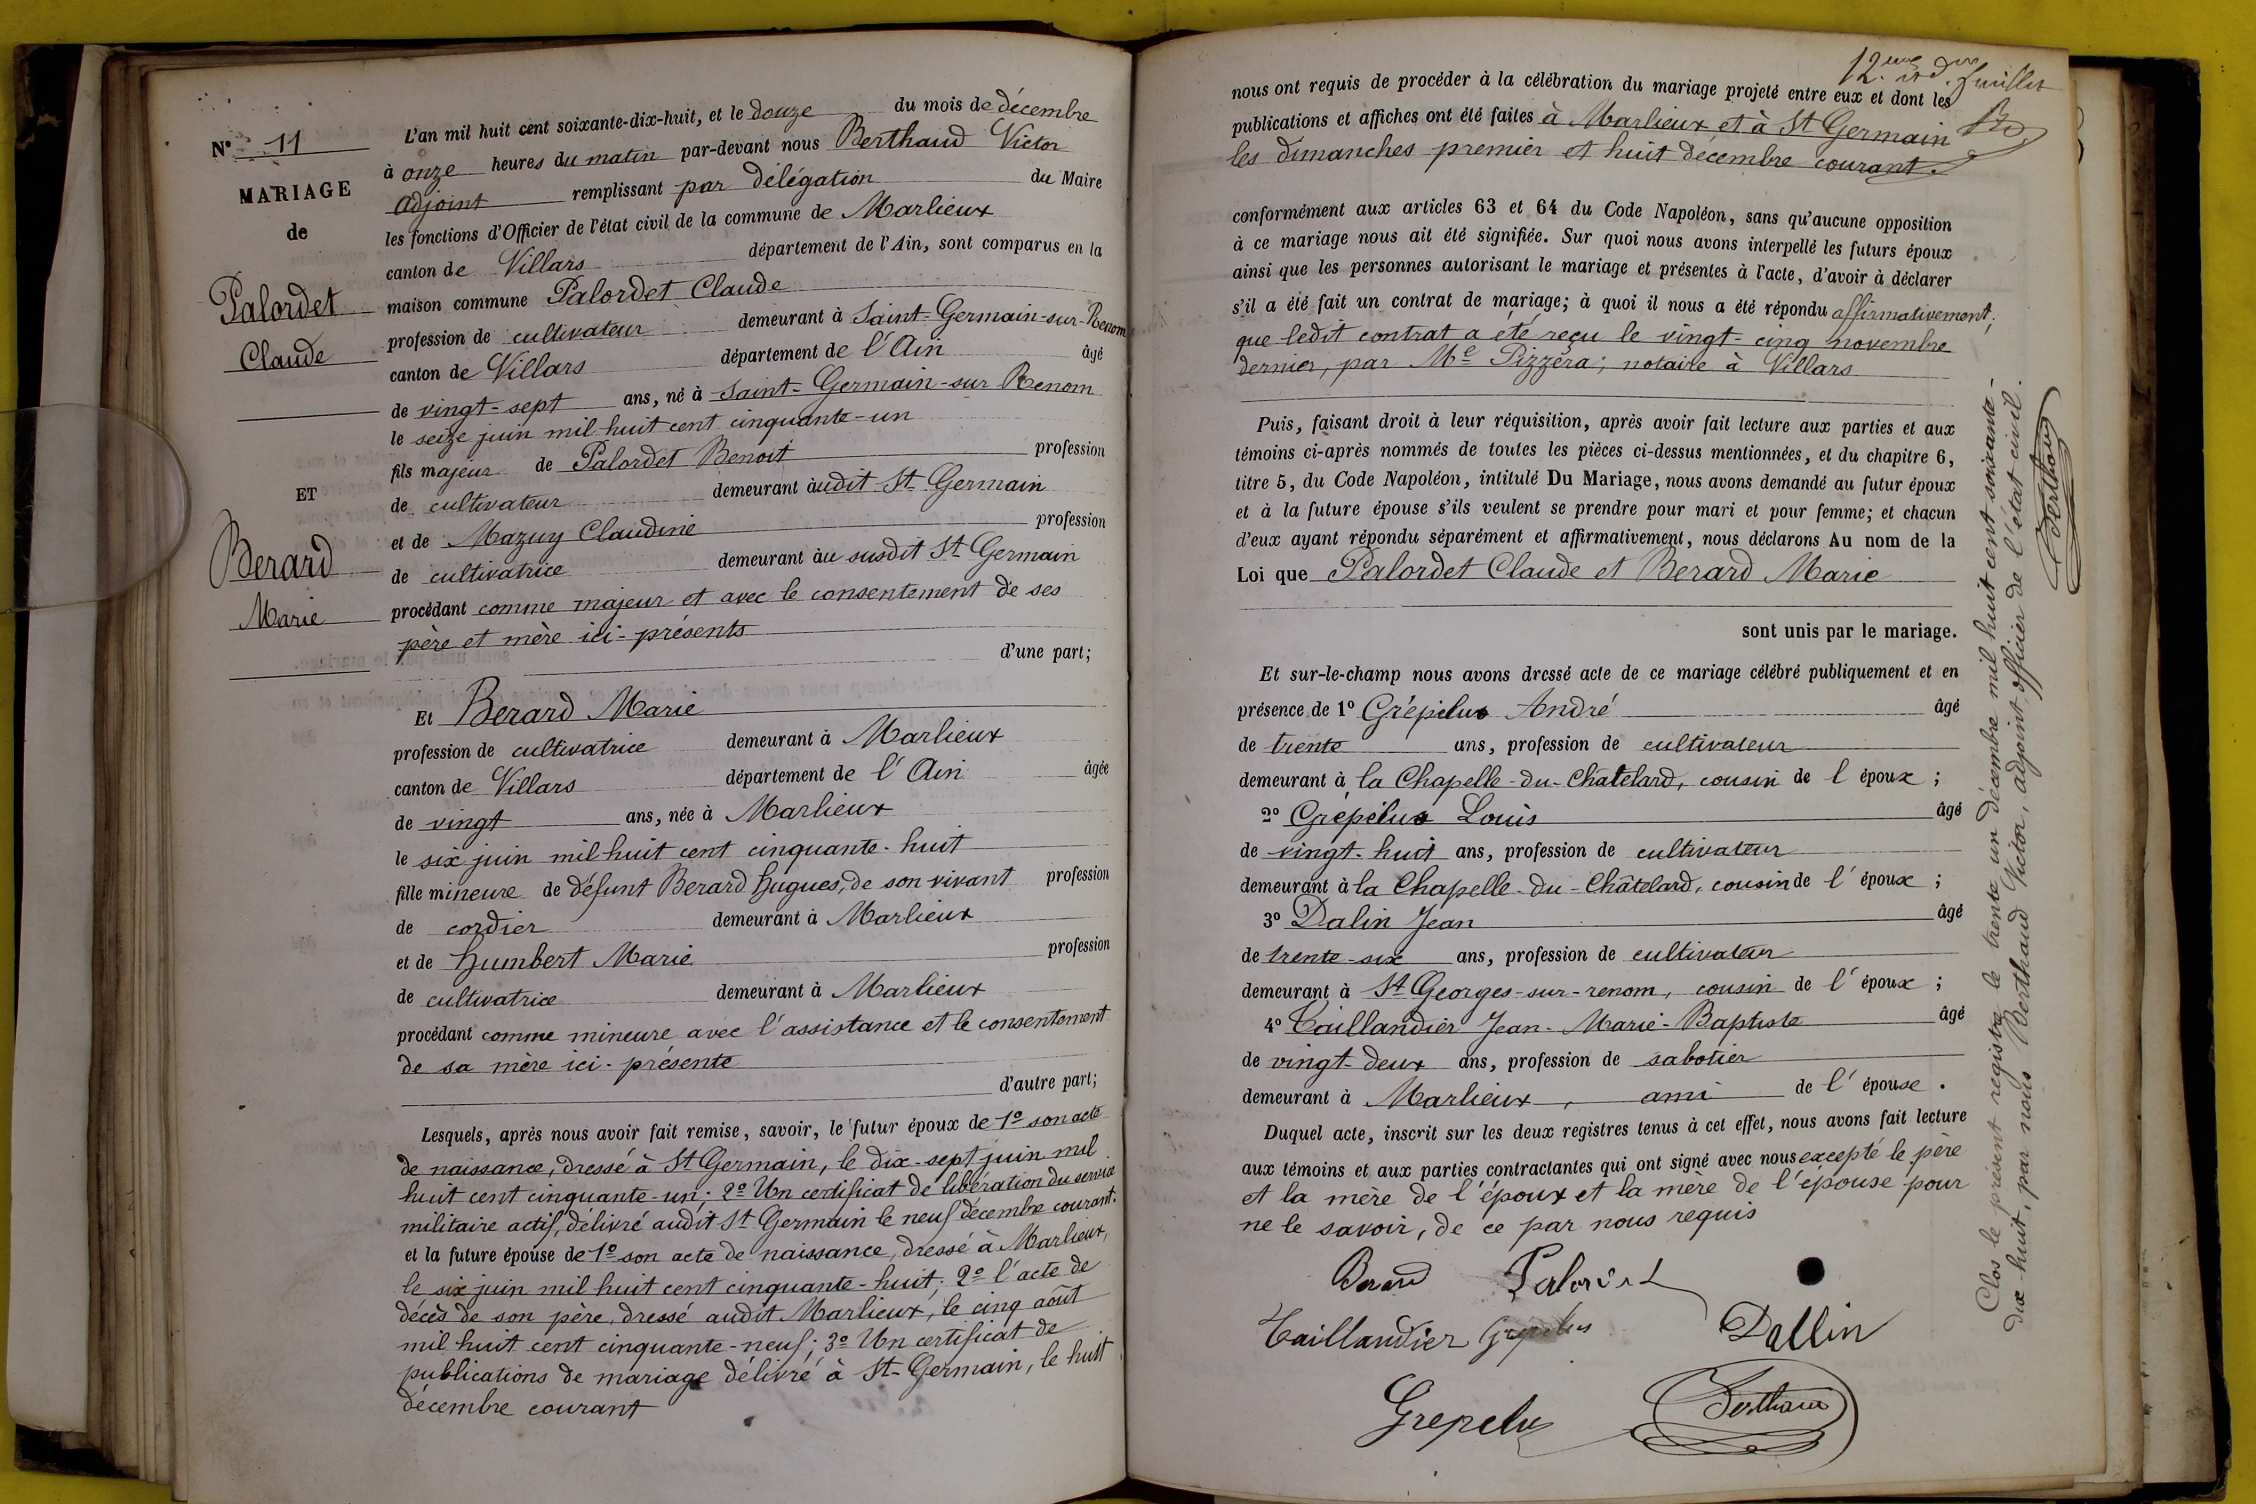 N° 11
MARIAGE
de
Palordet
Claude
ET
Berard
Marie
L'an mil huit cent soixante-dix-huit, et le douze du mois de décembre
à onze heures du matin par-devant nous Berthaud Victor
adjoint remplissant par délégation du Maire
les fonctions d'Officier de l'état civil de la commune de Marlieux
canton de Villars département de l'Ain, sont comparus en la
maison commune Palordet Claude
profession de cultivateur demeurant à Saint-Germain-sur-Renom
canton de Villars département de l'Ain âgé
de vingt-sept ans, né à Saint-Germain-sur Renom
le seize juin mil huit cent cinquante-un
fils majeur de Palordet Benoit profession
de cultivateur demeurant àudit St Germain
et de Mazuy Claudine profession
de cultivatrice demeurant àu susdit St Germain
procédant comme majeur et avec le consentement de ses
père et mère ici-présents
d'une part;
Et Berard Marie
profession de cultivatrice demeurant à Marlieux
canton de Villars département de l'Ain âgée
de vingt ans, née à Marlieux
le six juin mil huit cent cinquante-huit
fille mineure de défunt Berard Hugues, de son vivant profession
de cordier demeurant à Marlieux
et de Humbert Marie profession
de cultivatrice demeurant à Marlieux
procédant comme mineure avec l'assistance et le consentement
de sa mère ici-présente
d'autre part;
Lesquels, après nous avoir fait remise, savoir, le futur époux de 1° son acte
de naissance, dressé à St Germain, le dix-sept juin mil
huit cent cinquante-un; 2° Un certificat de libération du service
militaire actif, délivré audit St Germain le neuf décembre courant.
et la future épouse de 1° son acte de naissance, dressé à Marlieux,
le six juin mil huit cent cinquante-huit; 2° l'acte de
décès de son père, dressé audit Marlieux, le cinq août
mil huit cent cinquante-neuf; 3° Un certificat de
publications de mariage délivré à St-Germain, le huit
décembre courant
12eme et der feuillet
nous ont requis de procéder à la célébration du mariage projeté entre eux et dont les
publications et affiches ont été faites à Marlieux et à St Germain
les dimanches premier et huit décembre courant.
conformément aux articles 63 et 64 du Code Napoléon, sans qu'aucune opposition
à ce mariage nous ait été signifiée. Sur quoi nous avons interpellé les futurs époux
ainsi que les personnes autorisant le mariage et présentes à l'acte, d'avoir à déclarer
s'il a été fait un contrat de mariage; à quoi il nous a été répondu affirmativement,
que ledit contrat a été reçu le vingt-cinq novembre
dernier, par Me Pizzéra; notaire à Villars
Puis, faisant droit à leur réquisition, après avoir fait lecture aux parties et aux
témoins ci-après nommés de toutes les pièces ci-dessus mentionnées, et du chapitre 6,
titre 5, du Code Napoléon, intitulé Du Mariage, nous avons demandé au futur époux
et à la future épouse s'ils veulent se prendre pour mari et pour femme; et chacun
d'eux ayant répondu séparément et affirmativement, nous déclarons Au nom de la
Loi que Palordet Claude et Berard Marie
sont unis par le mariage.
Et sur-le-champ nous avons dressé acte de ce mariage célébré publiquement et en
présence de 1° Grépelus André âgé
de trente ans, profession de cultivateur
demeurant à la Chapelle-du-Châtelard, cousin de l époux;
2° Grépélus Louis âgé
de vingt-huit ans, profession de cultivateur
demeurant à la Chapelle-du-Châtelard, cousin de l'époux;
3° Dalin Jean âgé
de trente-six ans, profession de cultivateur
demeurant à St Georges-sur-renom, cousin de l'époux;
4° Taillandier Jean-Marie-Baptiste âgé
de vingt-deux ans, profession de sabotier
demeurant à Marlieux, ami de l'épouse.
Duquel acte, inscrit sur les deux registres tenus à cet effet, nous avons fait lecture
aux témoins et aux parties contractantes qui ont signé avec nous excepté le père
et la mère de l'époux et la mère de l'épouse pour
ne le savoir, de ce par nous requis
Berard Palordet
Taillandier Grepelus Dallin
Grepelus Berthaud
Clos le présent registre le trente un décembre mil huit cent soixante-
dix-huit, par nous Berthaud Victor, adjoint, officier de l'état civil.
Berthaud